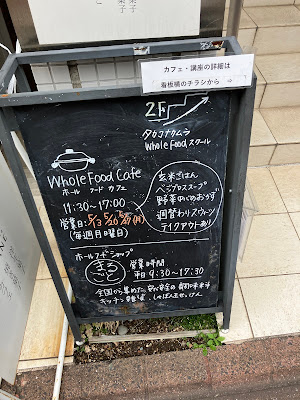 カフェ・講座の詳細は
看板横のチラシから →
2F
タカコナカムラ
Whole Food スクール
Whole Food Cafe
ホール フード カフェ
11:30～17:00
営業日:5/13 5/20 5/27(月)
(毎週月曜日)
玄米ごはん
ベジブロススープ
野菜のおかず
週替わりスウィーツ
テイクアウトあり
ホールフードショップ
営業時間
平日 9:30～17:30
全国から集めた安心安全の調味料
キッチン雑貨、しゃぼん玉せっけん